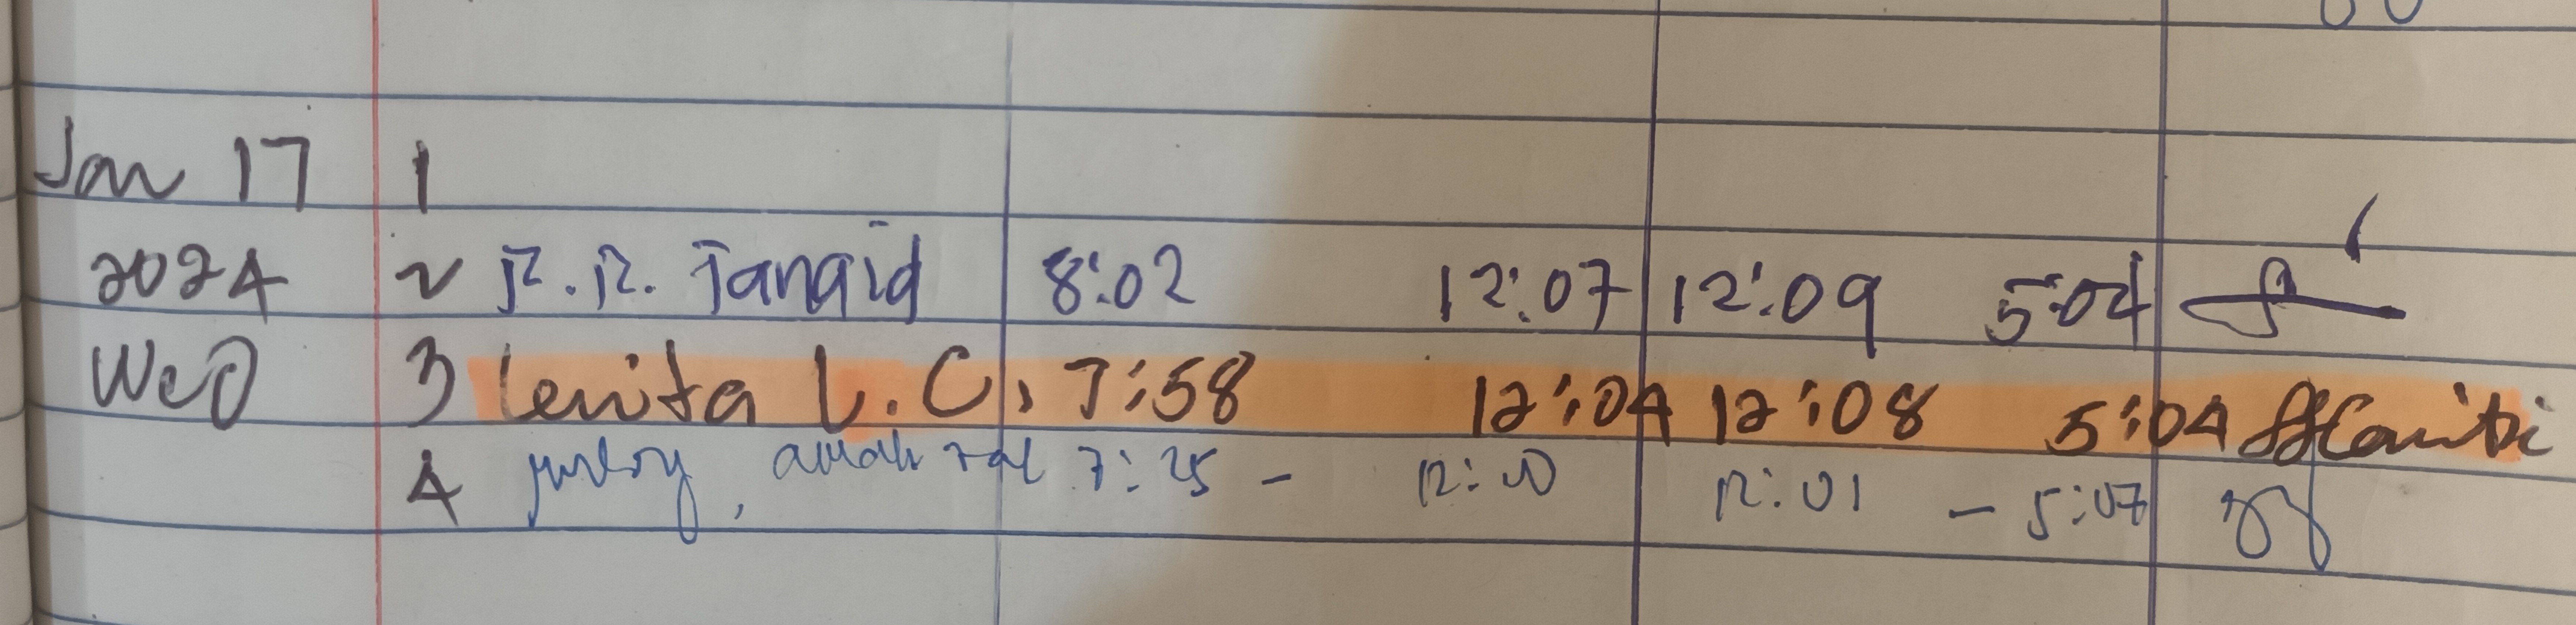 Jan 17 1
2024 2 R.R. Tangid 8:02 12:07 12:09 5:04
Wed 3 Lenita L.C. 7:58 12:04 12:08 5:04
4 7:25 - 12:00 12:01 - 5:07